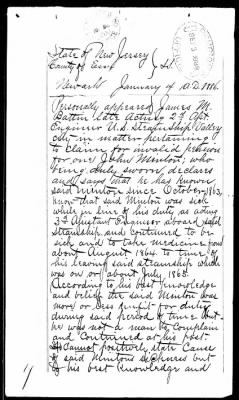 State of New Jersey
County of Essex } SS
Newark January 9 A.D. 1886.
Personally appeared James M.
late acting 3d Asst
Engineer U.S. Steamship Valley
City in matter pertaining
to claim for invalid pension
for one John Minton; who
being duly sworn, declares
and says that he has known
said Minton since October 1863,
know that said Minton was sick
while in line of his duty, as acting
3d Assistant Engineer aboard said
Steamship and continued to be
sick and to take medicine from
about August 1864 to time of
his leaving said steamship which
was on or about July 1865.
According to his best knowledge
and belief the said Minton was
more or less unfit for duty
during said period of time but
he was not a man to complain
and continued at his post.
Cannot positively state cause
of said Mintons sickness but
to his best knowledge and